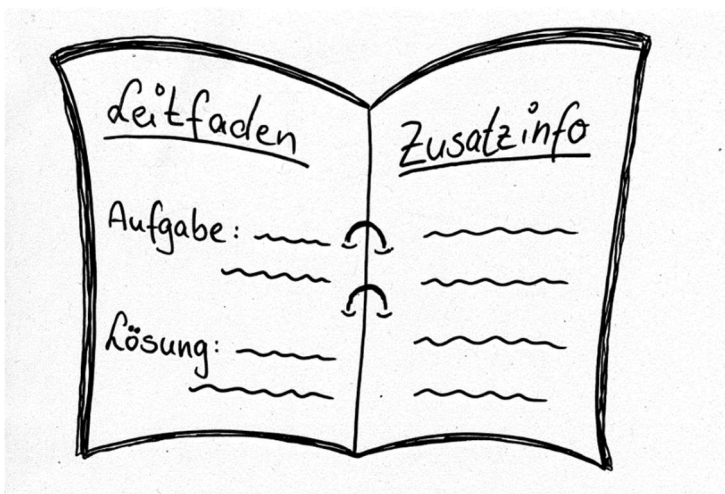 Leitfaden
Aufgabe:
Lösung:
Zusatzinfo